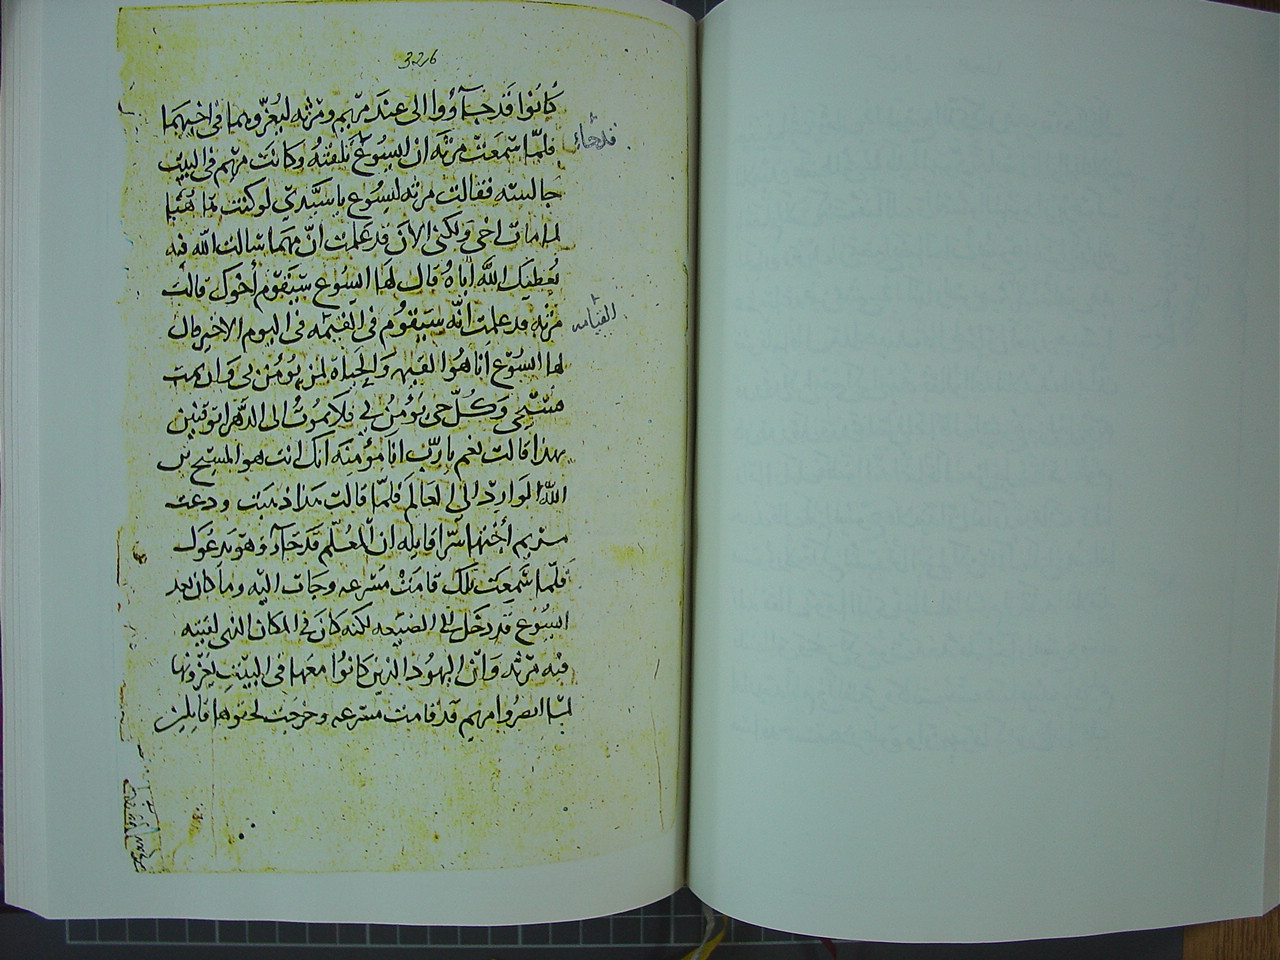 326
كانوا قد جآؤوا الى عند مريم ومرثه ليعزوهما في اخيهما
فلما سمعت مرثه ان ايسوع تلقته وكانت مريم في البيت
قد جاء
جالسه فقالت مرثه ليسوع ياسيدي لو كنت ثم هنا
لما مات اخي ولكني الان قد علمت ان مهما سالت الله فيه
يعطيك الله اياه قال لها ايسوع سيقوم أخوك قالت
مرثه قد علمت انه سيقوم في القيمه في اليوم الاخير قال
القيامه
لها ايسوع انا هوا القيمه والحياه لمن يؤمن بي وان يمت
سيحي وكل حي يؤمن بي فلا يموت الى الدهر اتوقنين
بهذا قالت نعم يا رب انا مؤمنه انك انت هو المسيح بن
الله الوارد الى العالم فلما قالت هذا ذهبت ودعت
مريم أختها سرا قايله ان المعلم قد جآء وهو يدعوك
فلما سمعت تلك قامت مسرعه وجات اليه وما كان بعد
ايسوع قد دخل الى الضيعه لكنه كان في المكان الذي لقيته
فيه مرثه وان اليهود الذين كانوا معها في البيت يعزونها
لما ابصروا مريم قد قامت مسرعه وخرجت لحقوها قايلين